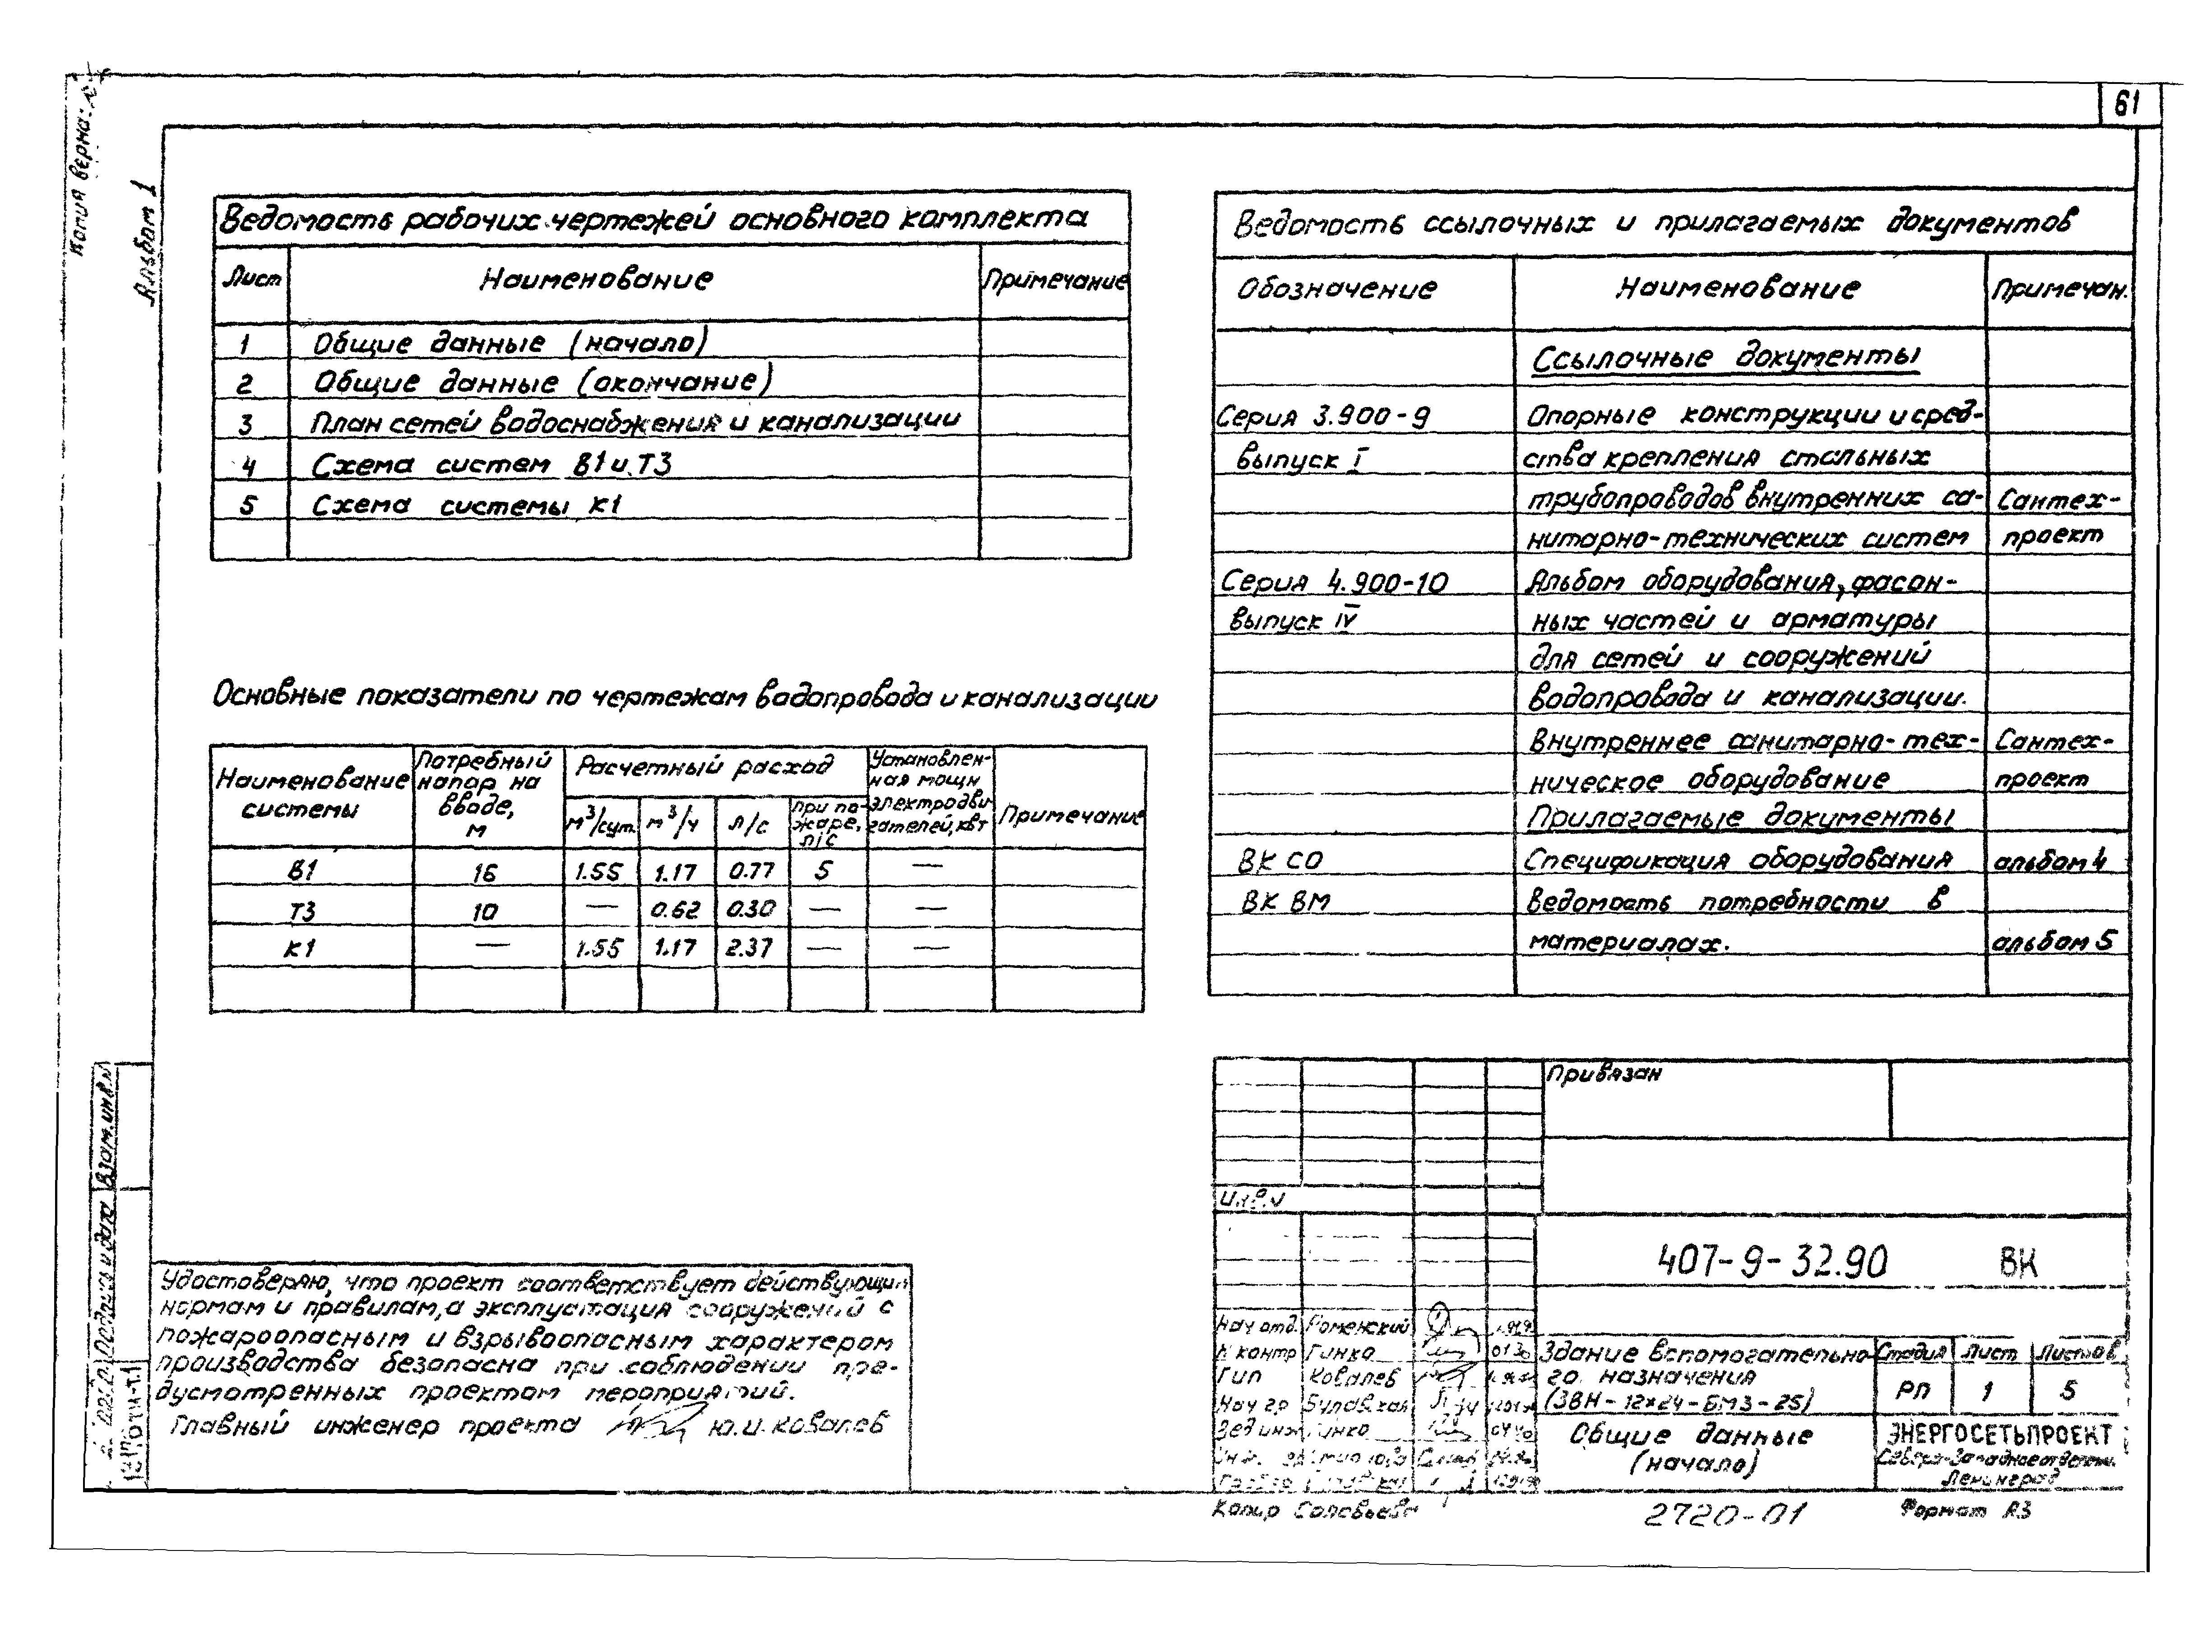 61
Копия верна:
Альбом 1
Ведомость рабочих чертежей основного комплекта
Лист Наименование Примечание
1 Общие данные (начало)
2 Общие данные (окончание)
3 План сетей водоснабжения и канализации
4 Схема систем В1 и Т3
5 Схема системы К1
Основные показатели по чертежам водопровода и канализации
Наименование системы
Потребный напор на вводе, м
Расчетный расход
м³/сут. м³/ч л/с При пожаре, л/с
Установленная мощн электродвигателей, квт
Примечание
В1 16 1.55 1.17 0.77 5 —
Т3 10 — 0.62 0.30 — —
К1 — 1.55 1.17 2.37 — —
Ведомость ссылочных и прилагаемых документов
Обозначение Наименование Примечан.
Ссылочные документы
Серия 3.900-9 Опорные конструкции и сред-
выпуск I ства крепления стальных
трубопроводов внутренних са- Сантех-
нитарно-технических систем проект
Серия 4.900-10 Альбом оборудования, фасон-
выпуск IV ных частей и арматуры
для сетей и сооружений
водопровода и канализации.
Внутреннее санитарно-тех- Сантех-
ническое оборудование проект
Прилагаемые документы
ВК СО Спецификация оборудования альбом 4
ВК ВМ Ведомость потребности в
материалах. альбом 5
Взам. инв. №
Подпись и дата
Удостоверяю, что проект соответствует действующим
нормам и правилам, а эксплуатация сооружений с
пожароопасным и взрывоопасным характером
производства безопасна при соблюдении пре-
дусмотренных проектом мероприятий.
Главный инженер проекта Ю.И. Ковалев
Привязан
Инв. №
407-9-32.90 ВК
Нач отд. Роменский
Н контр Гинко
Гип Ковалев
Нач гр
Вед инж Гинко
Здание вспомогательно-
го назначения
(ЗВН-12×24-БМЗ-25)
Стадия Лист Листов
РП 1 5
Общие данные
(начало)
ЭНЕРГОСЕТЬПРОЕКТ
Северо-Западное отделен.
Ленинград
Копир Соловьева
2720-01
Формат А3